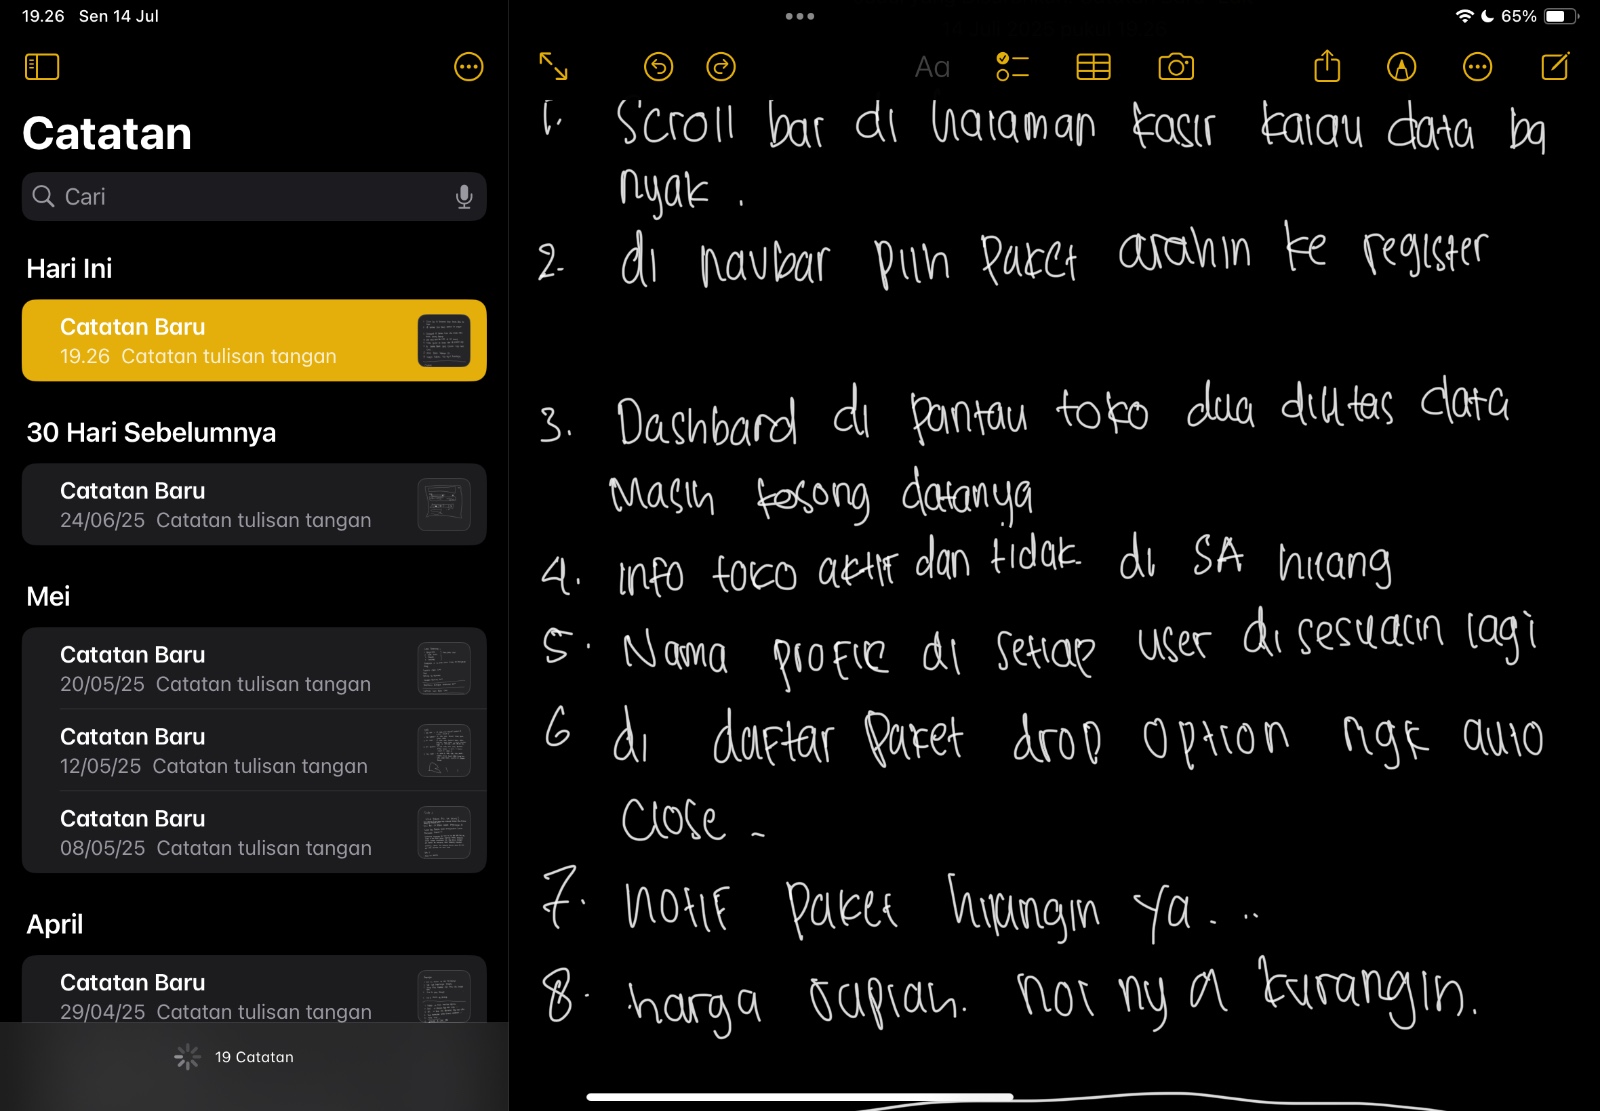 19.26 Sen 14 Jul
65%
Aa
Catatan
Cari
Hari Ini
Catatan Baru
19.26 Catatan tulisan tangan
30 Hari Sebelumnya
Catatan Baru
24/06/25 Catatan tulisan tangan
Mei
Catatan Baru
20/05/25 Catatan tulisan tangan
Catatan Baru
12/05/25 Catatan tulisan tangan
Catatan Baru
08/05/25 Catatan tulisan tangan
April
Catatan Baru
29/04/25 Catatan tulisan tangan
19 Catatan
1. Scroll bar di halaman kasir kalau data ba
nyak.
2. di navbar pilih paket arahin ke register
3. Dashbard di pantau toko dua diutas data
Masih kosong datanya
4. info toko aktif dan tidak di SA hilang
5. Nama profil di setiap user di sesuaiin lagi
6 di daftar paket drop option ngk auto
close -
7. notif paket hilangin ya...
8. harga rupiah. nol nya kurangin.